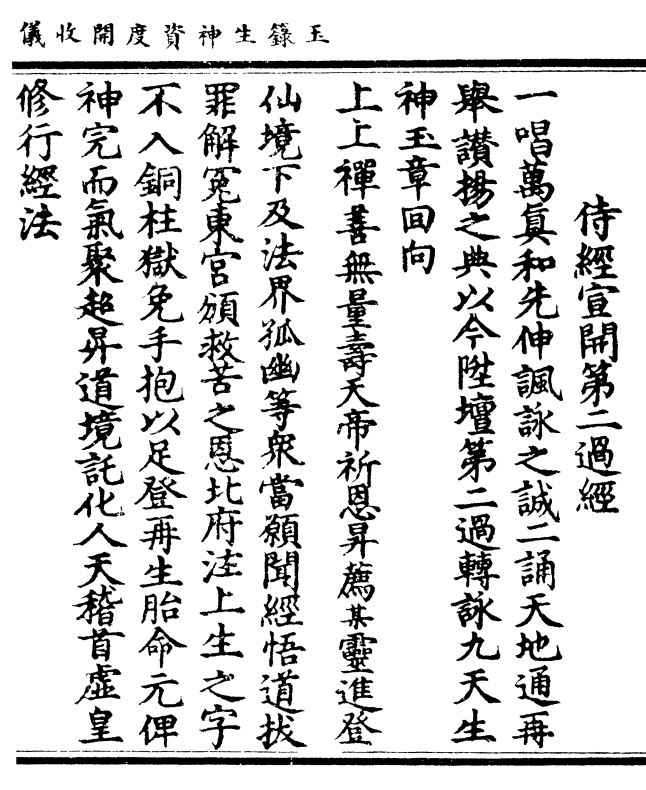 儀收開度資神生籙玉
侍經宣開第二過經
一唱萬眞和先伸諷詠之誠二誦天地通再
舉讃揚之典以今陞壇第二過轉詠九天生
神玉章回向
上上禪善無量壽天帝祈恩昇薦某靈進登
仙境下及法界孤幽等衆當願聞經悟道拔
罪解冤東宮頒救苦之恩北府注上生之字
不入銅柱獄免手抱以足登再生胎命元俾
神完而氣聚超昇道境託化人天稽首虛皇
修行經法